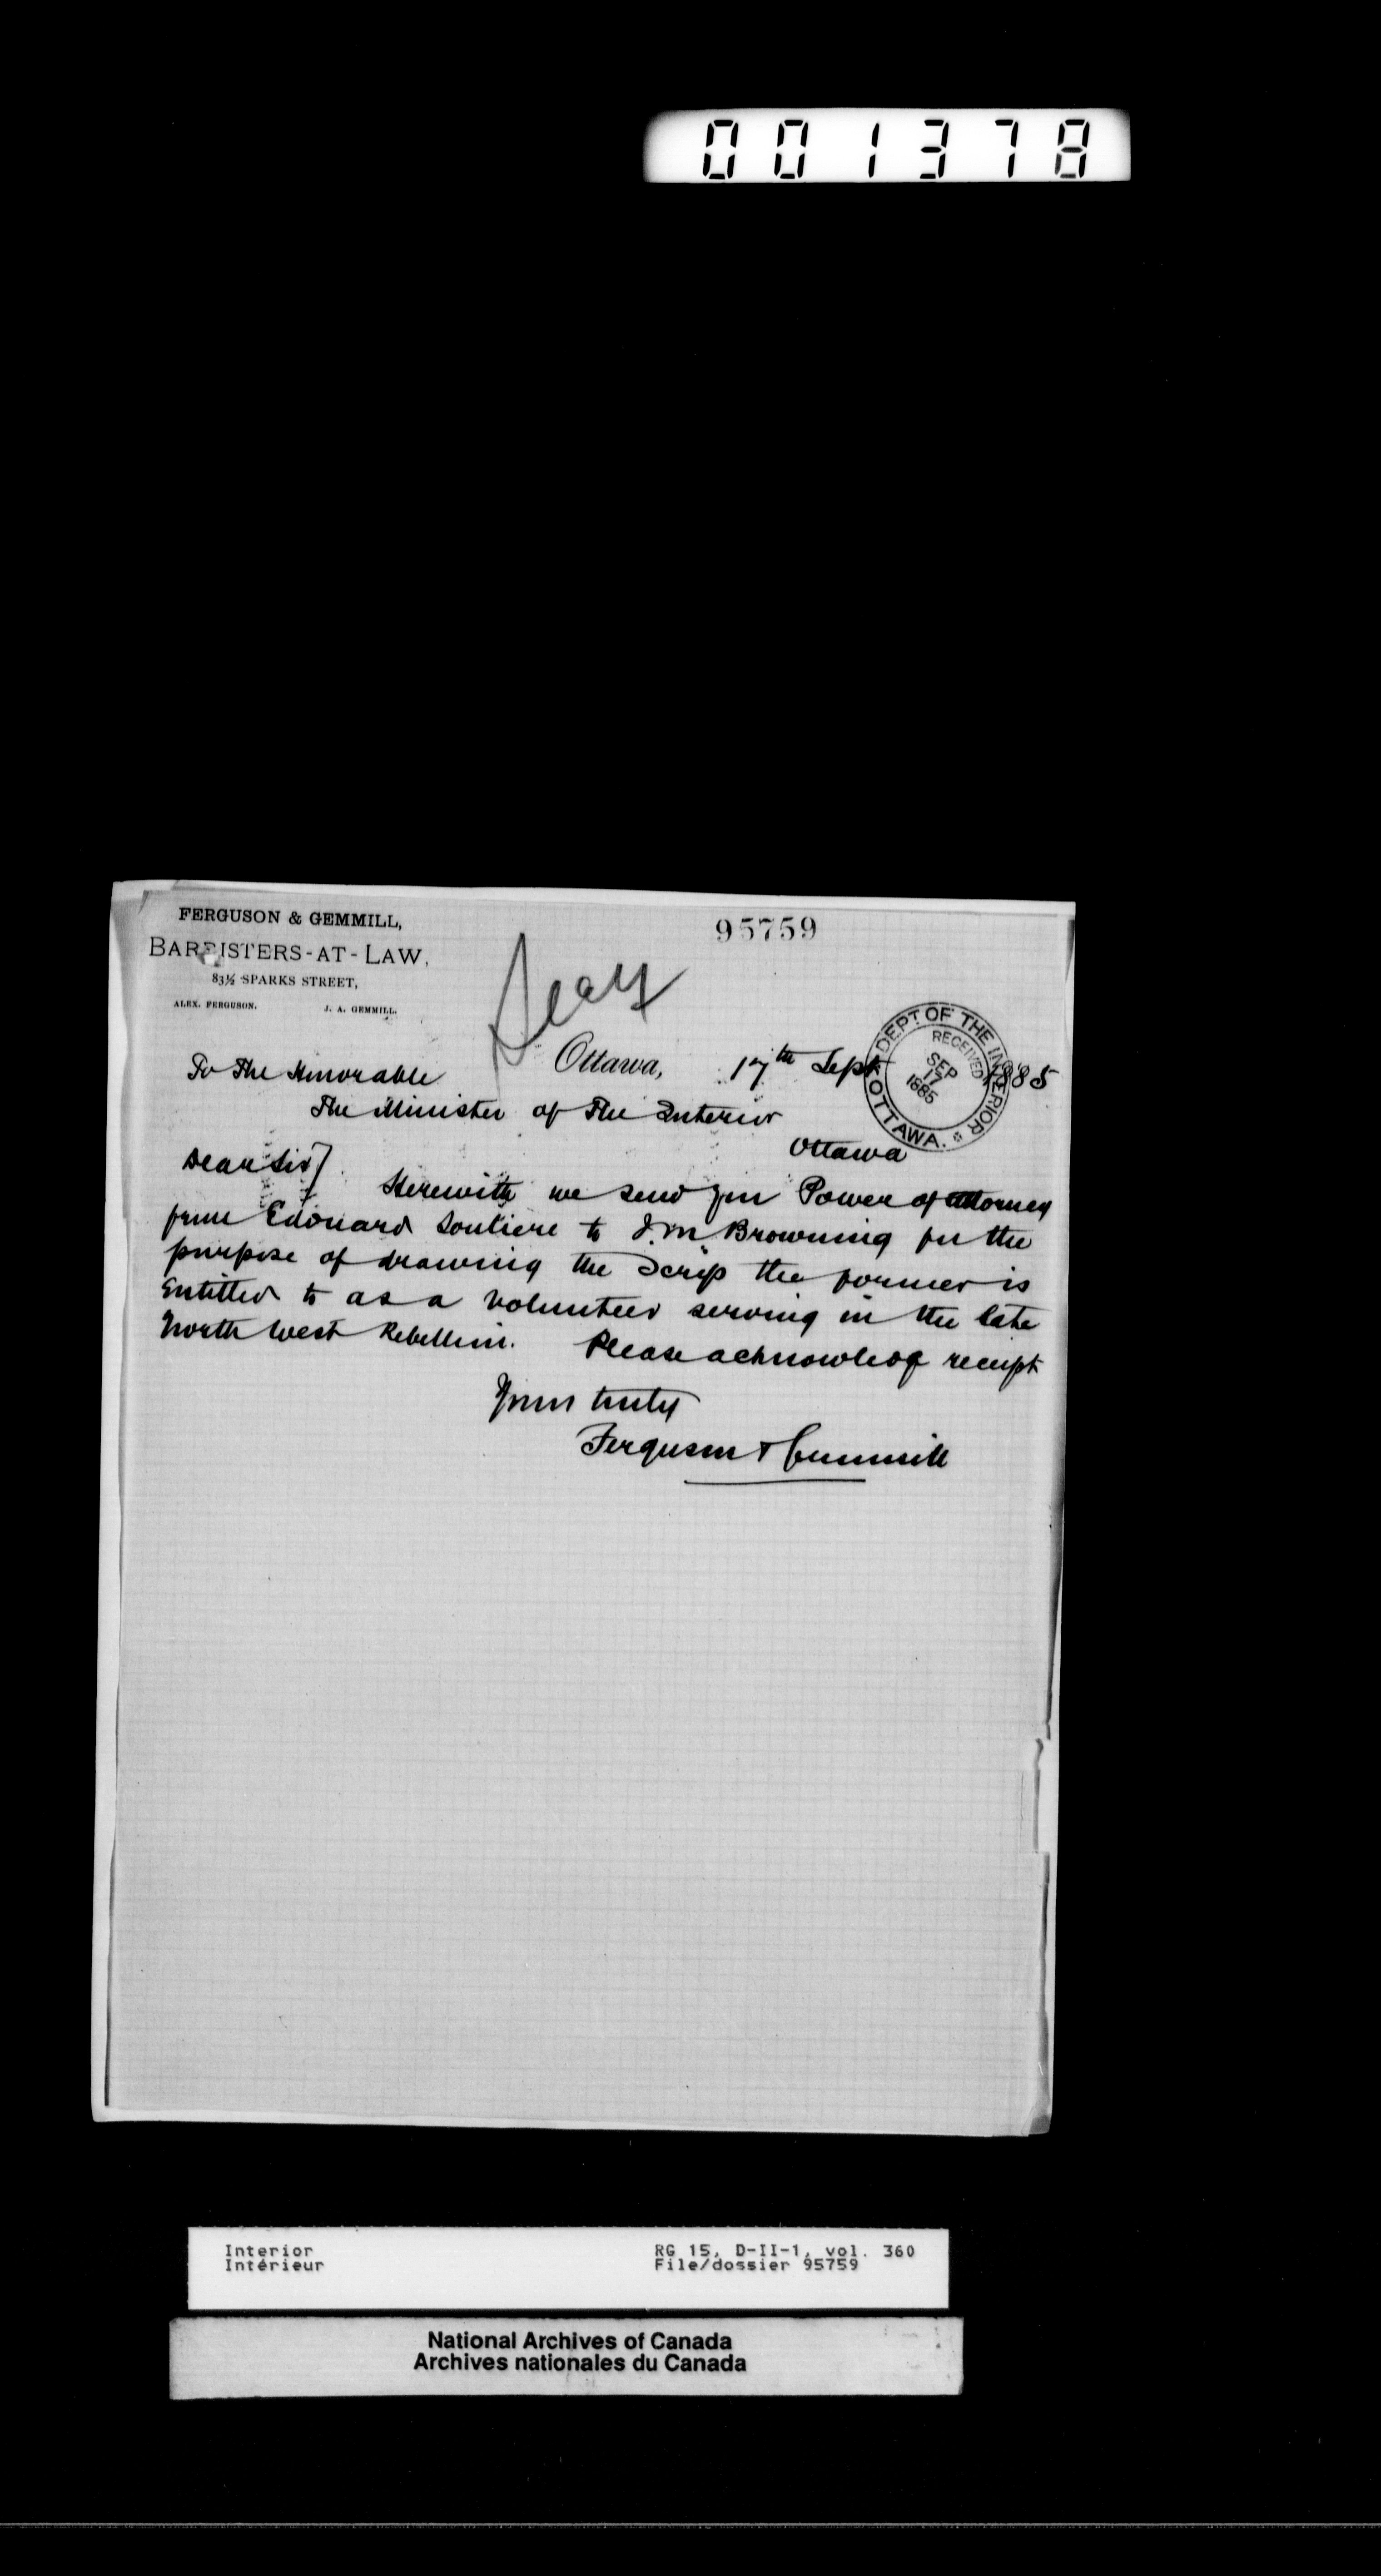 001378
FERGUSON & GEMMILL,
BARRISTERS-AT-LAW,
83½ SPARKS STREET,
ALEX. FERGUSON. J. A. GEMMILL.
95759
DEPT OF THE INTERIOR
RECEIVED
SEP
17
1885
OTTAWA.
Ottawa, 17th Sept 1885
To The Honorable
The Minister of The Interior
Ottawa
Dear Sir
Herewith we send you Power of attorney
from Edouard Souliere to J.M. Browning for the
purpose of drawing the Scrip the former is
Entitled to as a Volunteer serving in the late
North West Rebellion. Please acknowledge receipt
Yours truly
Ferguson & Gemmill
Interior
Intérieur
RG 15, D-II-1, vol. 360
File/dossier 95759
National Archives of Canada
Archives nationales du Canada